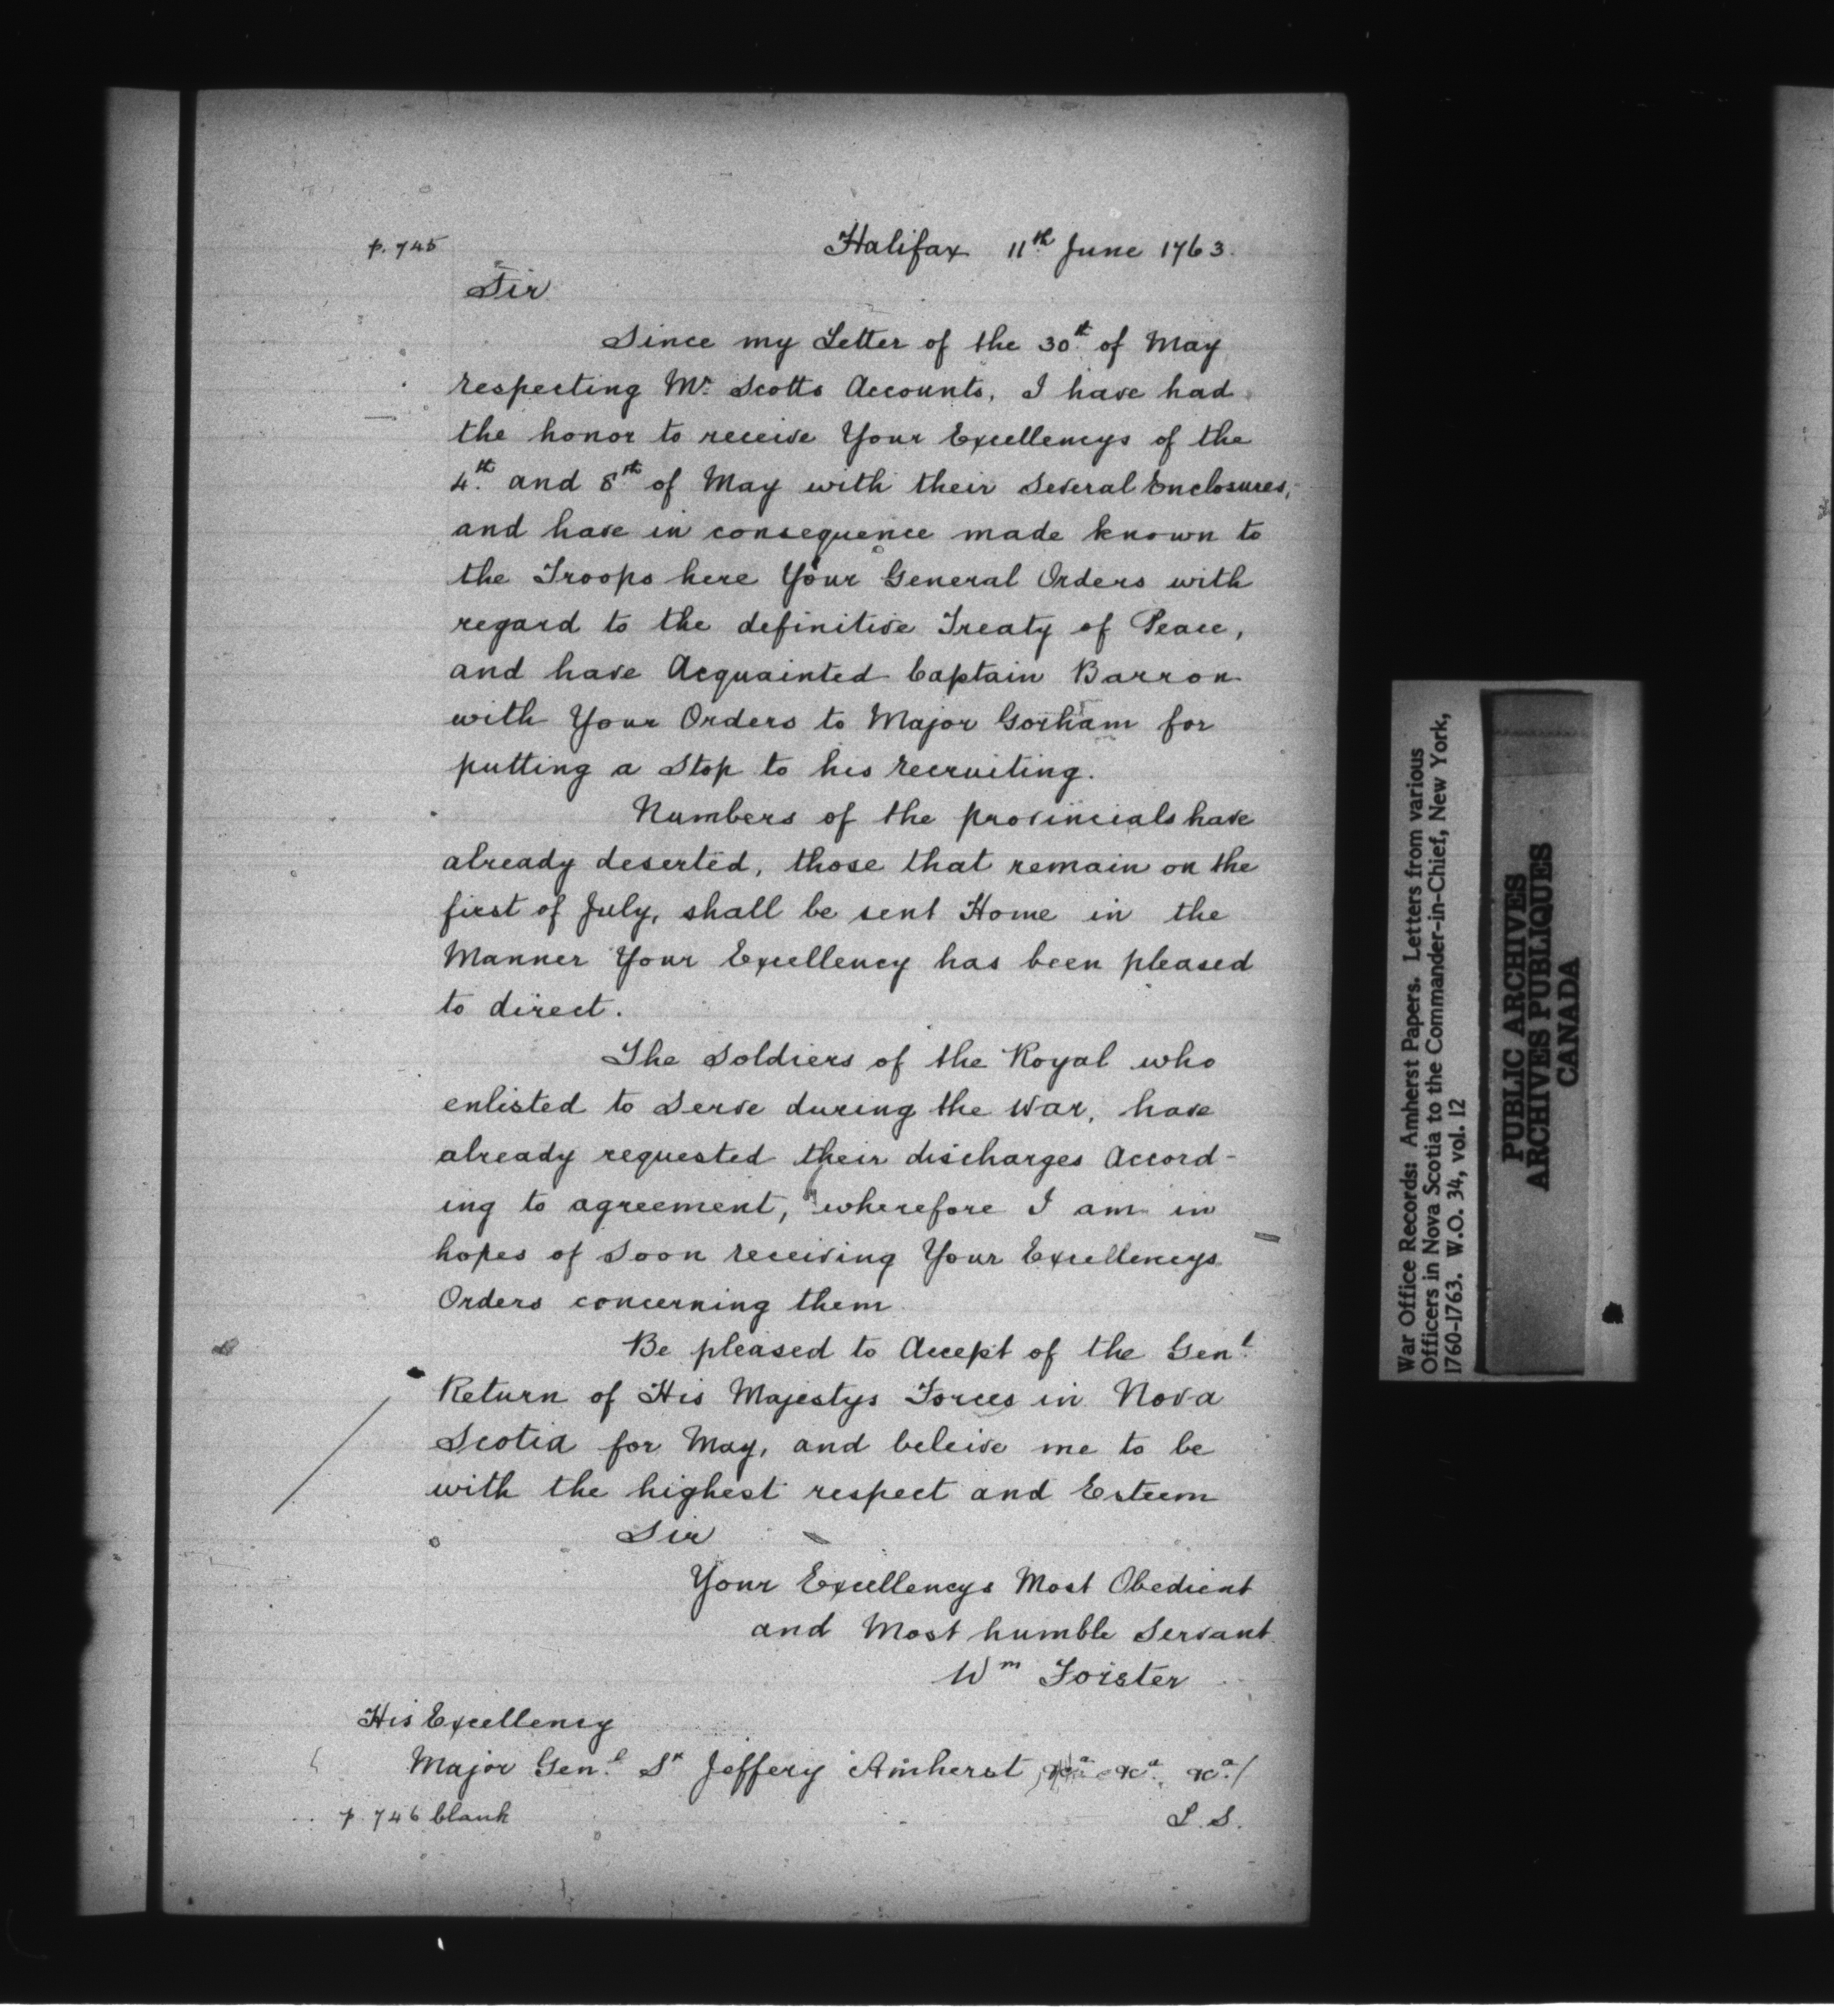 p. 745
Halifax 11th June 1763.
Sir
Since my Letter of the 30th of May
respecting Mr Scotts Accounts, I have had
the honor to receive Your Excellencys of the
4th and 8th of May with their Several Enclosures,
and have in consequence made known to
the Troops here Your General Orders with
regard to the definitive Treaty of Peace,
and have Acquainted Captain Barron
with Your Orders to Major Gorham for
putting a Stop to his recruiting.
Numbers of the provincials have
already deserted, those that remain on the
first of July, shall be sent Home in the
Manner Your Excellency has been pleased
to direct.
The Soldiers of the Royal who
enlisted to Serve during the War, have
already requested their discharges Accord-
ing to agreement, wherefore I am in
hopes of Soon receiving Your Excellencys
Orders concerning them
Be pleased to Accept of the Genl
Return of His Majestys Forces in Nova
Scotia for May, and beleive me to be
with the highest respect and Esteem
Sir
Your Excellencys Most Obedient
and Most humble Servant
Wm Forster
His Excellency
Major Genl Sr Jeffery Amherst, &ca &ca, &ca/
p. 746 blank
L. S.
War Office Records: Amherst Papers. Letters from various
Officers in Nova Scotia to the Commander-in-Chief, New York,
1760-1763. W.O. 34, vol. 12
PUBLIC ARCHIVES
ARCHIVES PUBLIQUES
CANADA